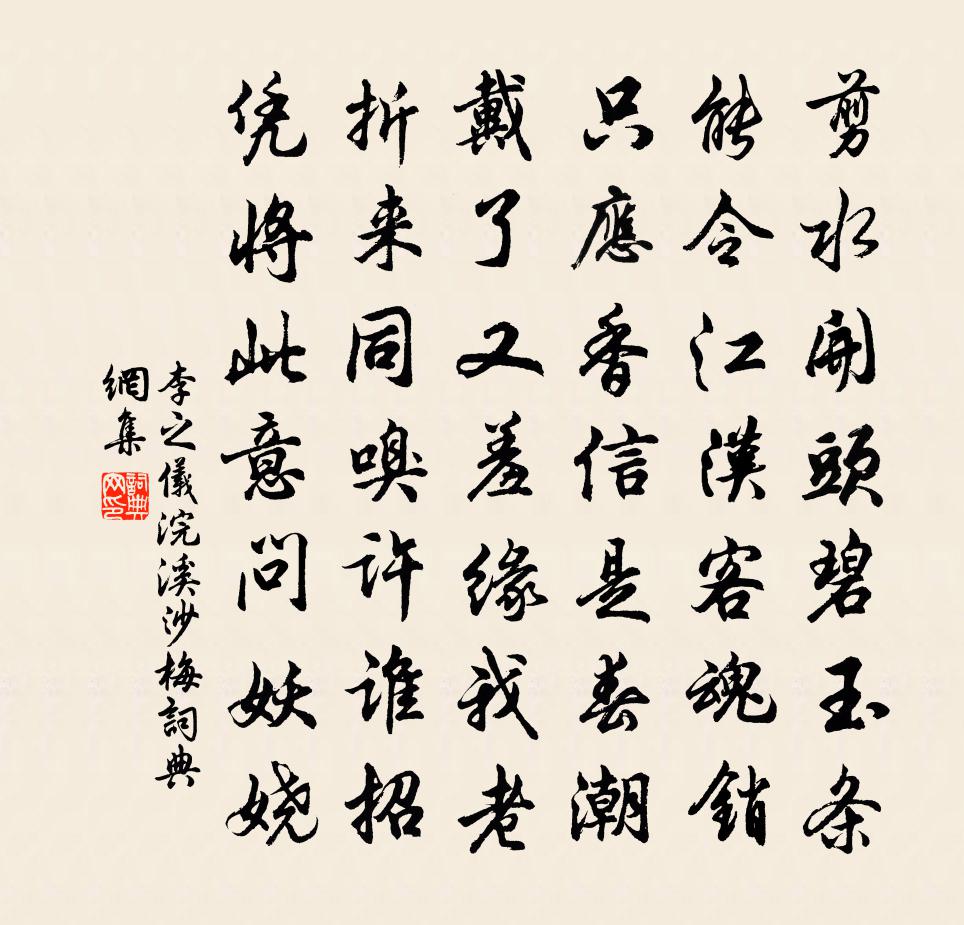 剪水開頭碧玉条
能令江漢客魂銷
只應香信是春潮
戴了又羞緣我老
折来同嗅許誰招
凭将此意问妖娆
李之儀浣溪沙梅詞典
網集
詞典网印